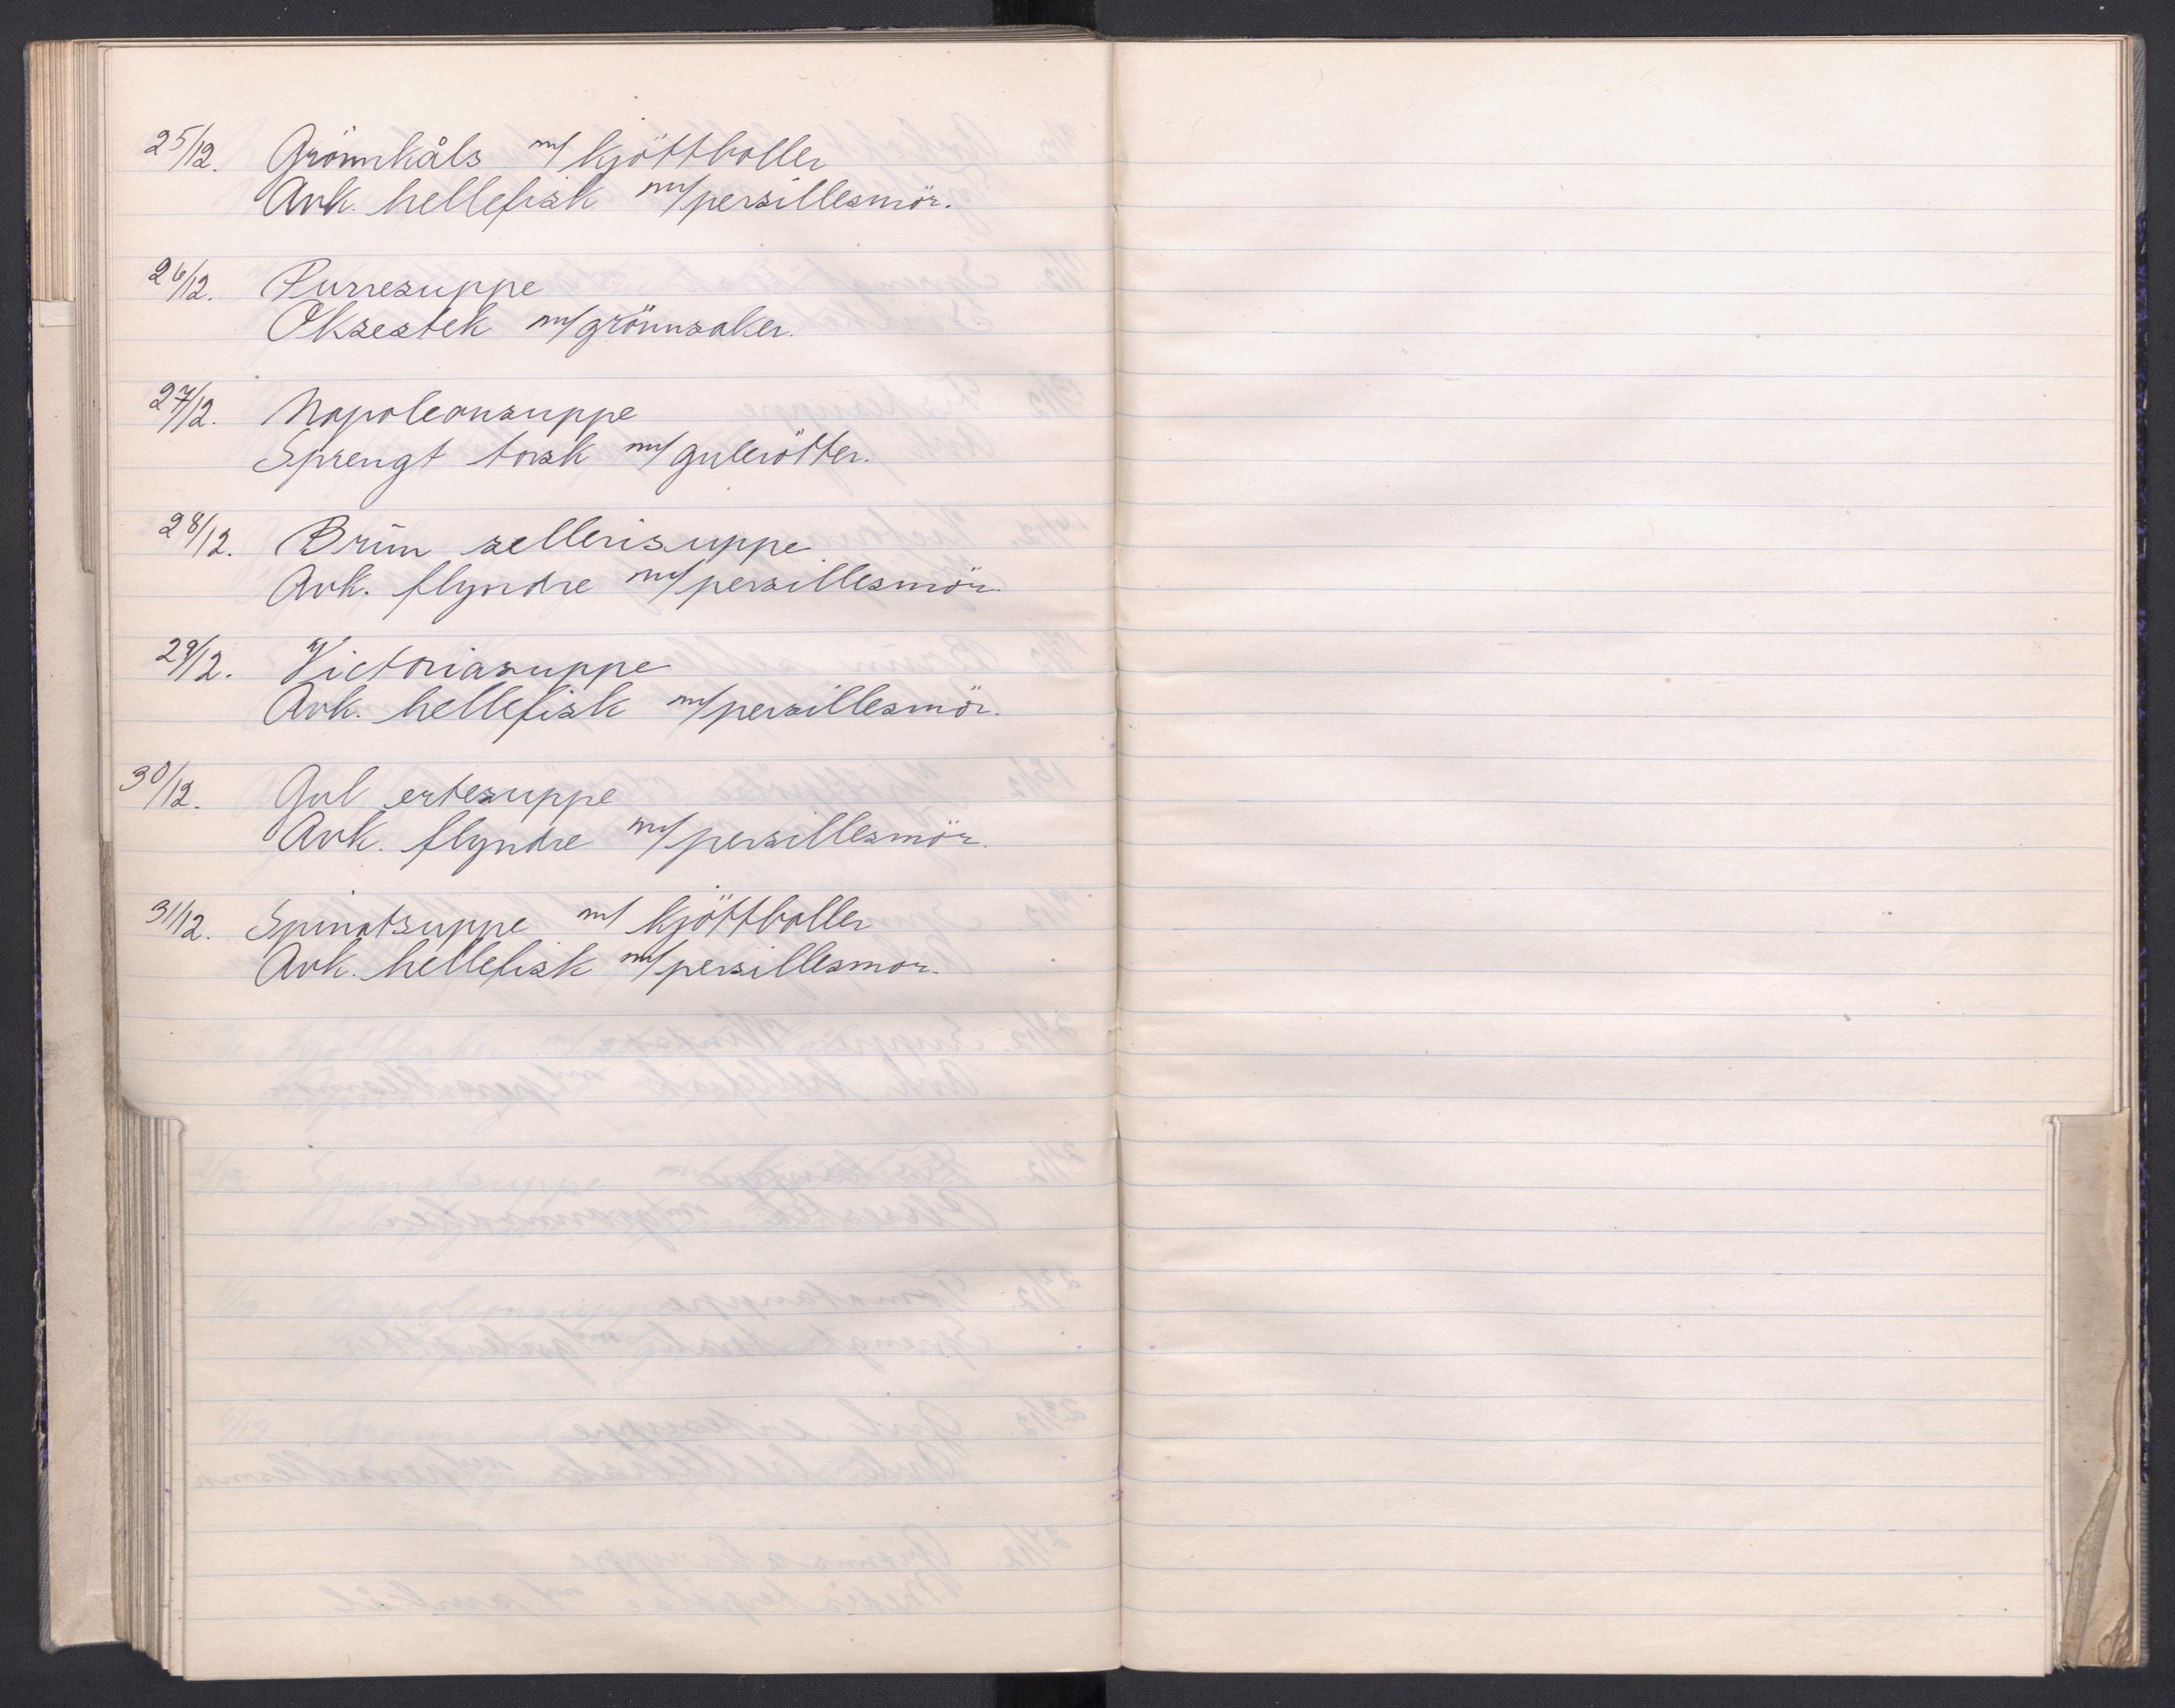 25/12. Grönnkåls m/ kjöttboller
Avk. hellefisk m/persillesmör.
26/12. Purresuppe
Oksestek m/grönnsaker.
27/12. Napoleonsuppe
Sprengt torsk m/gulerötter.
28/12. Brun sellerisuppe
Avk. flyndre m/persillesmör.
29/12. Victoriasuppe
Avk. hellefisk m/persillesmör.
30/12. Gul ertesuppe
Avk. flyndre m/persillesmör.
31/12. Spinatsuppe m/ kjöttboller
Avk. hellefisk m/persillesmor.